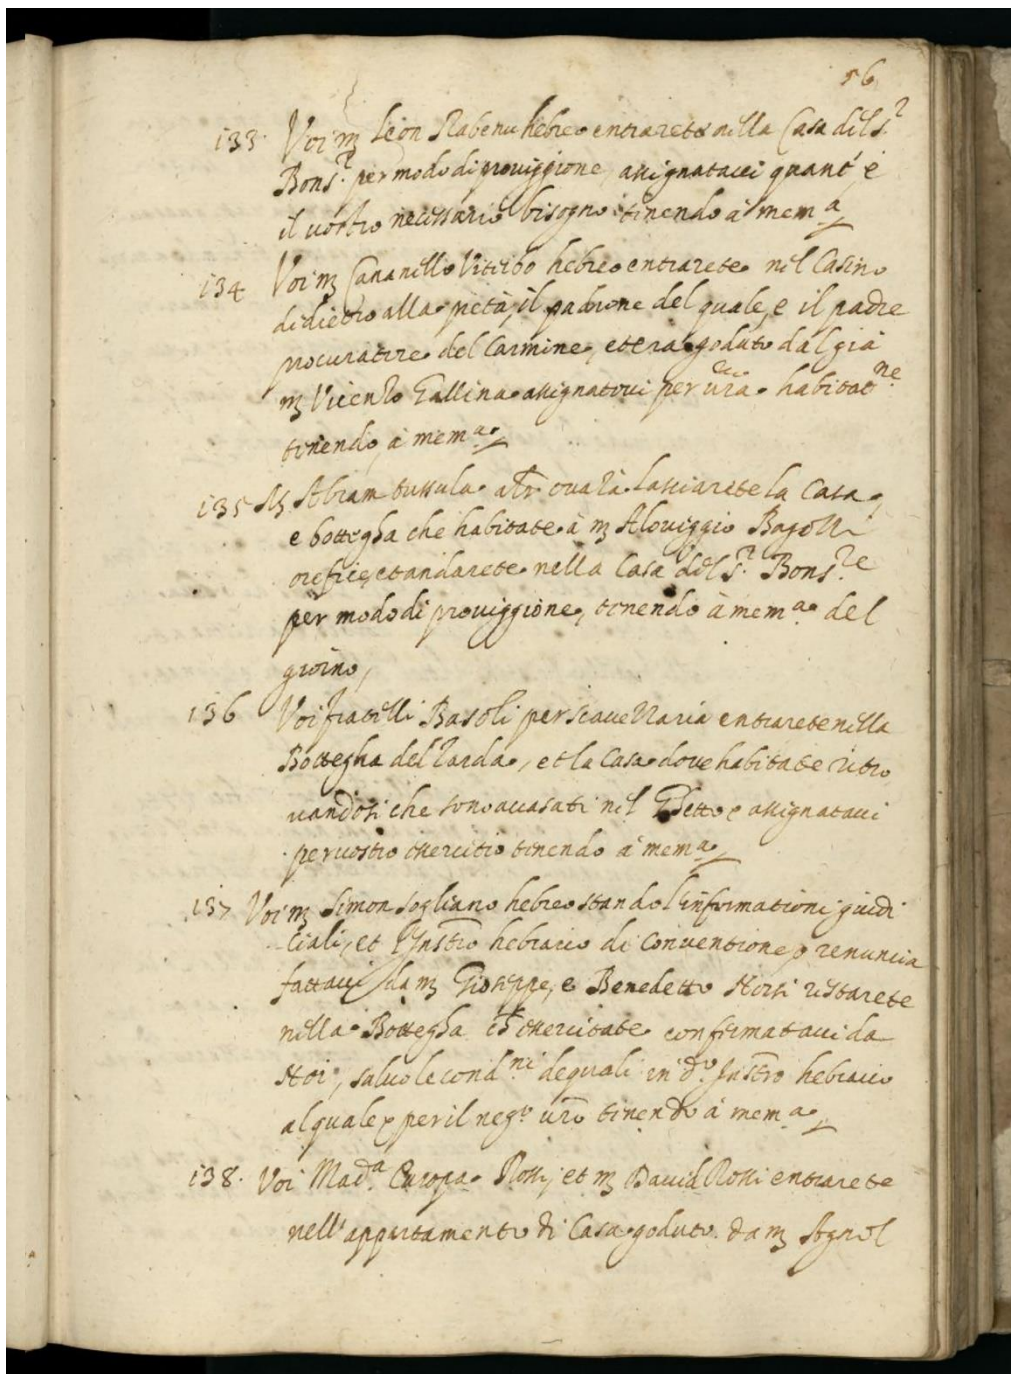 56
133. Voi m Leon Rabenu hebreo entrarete nella Casa del s.r
Bons.r per modo di proviggione, assignatavi quant' è
il vostro necessario bisogno tenendo à mem.a
134 Voi m Cananello Viterbo hebreo entrarete nel Casino
di dietro alla pietà, il padrone del quale, e il padre
procuratore del Carmine, et era goduto dal già
m Vicenzo Gallina assignatovi per vra habitat.ne
tenendo à mem.a
135 M Abram tussula lasciarete la Casa,
e bottegha che habitate à m Alouiggio
orefice, et andarete nella Casa del s.r Bons.re
per modo di proviggione, tenendo à mem.a del
gioino,
136 Voi fratelli Basoli per entrarete nella
Bottegha del Tarda, et la Casa dove habitate ritro
vandosi che sono accasati nel Ghetto e assignatavi
per vostro essercitio tenendo à mem.a
137 Voi m Simon sogliano hebreo stando l'informationi giudi
ciali, et l'Instro hebraico di Conventione, e renuncia
fattavi da m Gioseppe, e Benedetto Norsi restarete
nella Bottegha ch essercitate confirmatavi da
Noi, salvo le cond.ni de quali in d.o Instro hebraico
al quale, e per il neg.o vro tenendo à mem.a
138. Voi Mad.a Europa Rossi, et m David Rossi entrarete
nell' appartamento di Casa goduto da m Agnol